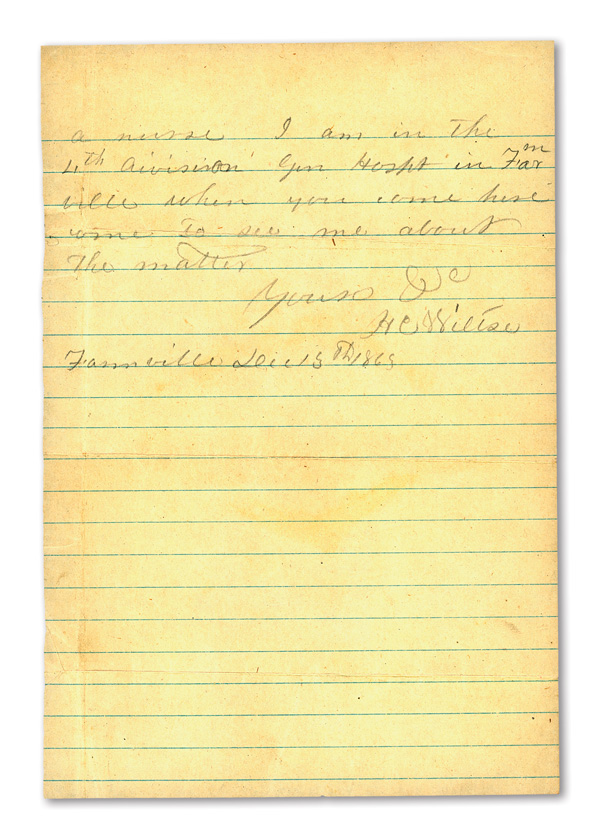 a nurse I am in the
4th division Gen Hospt in Farm
ville when you come here
come to see me about
the matter
Yours &c
H C Wiltse
Farmville Dec 15th 1863